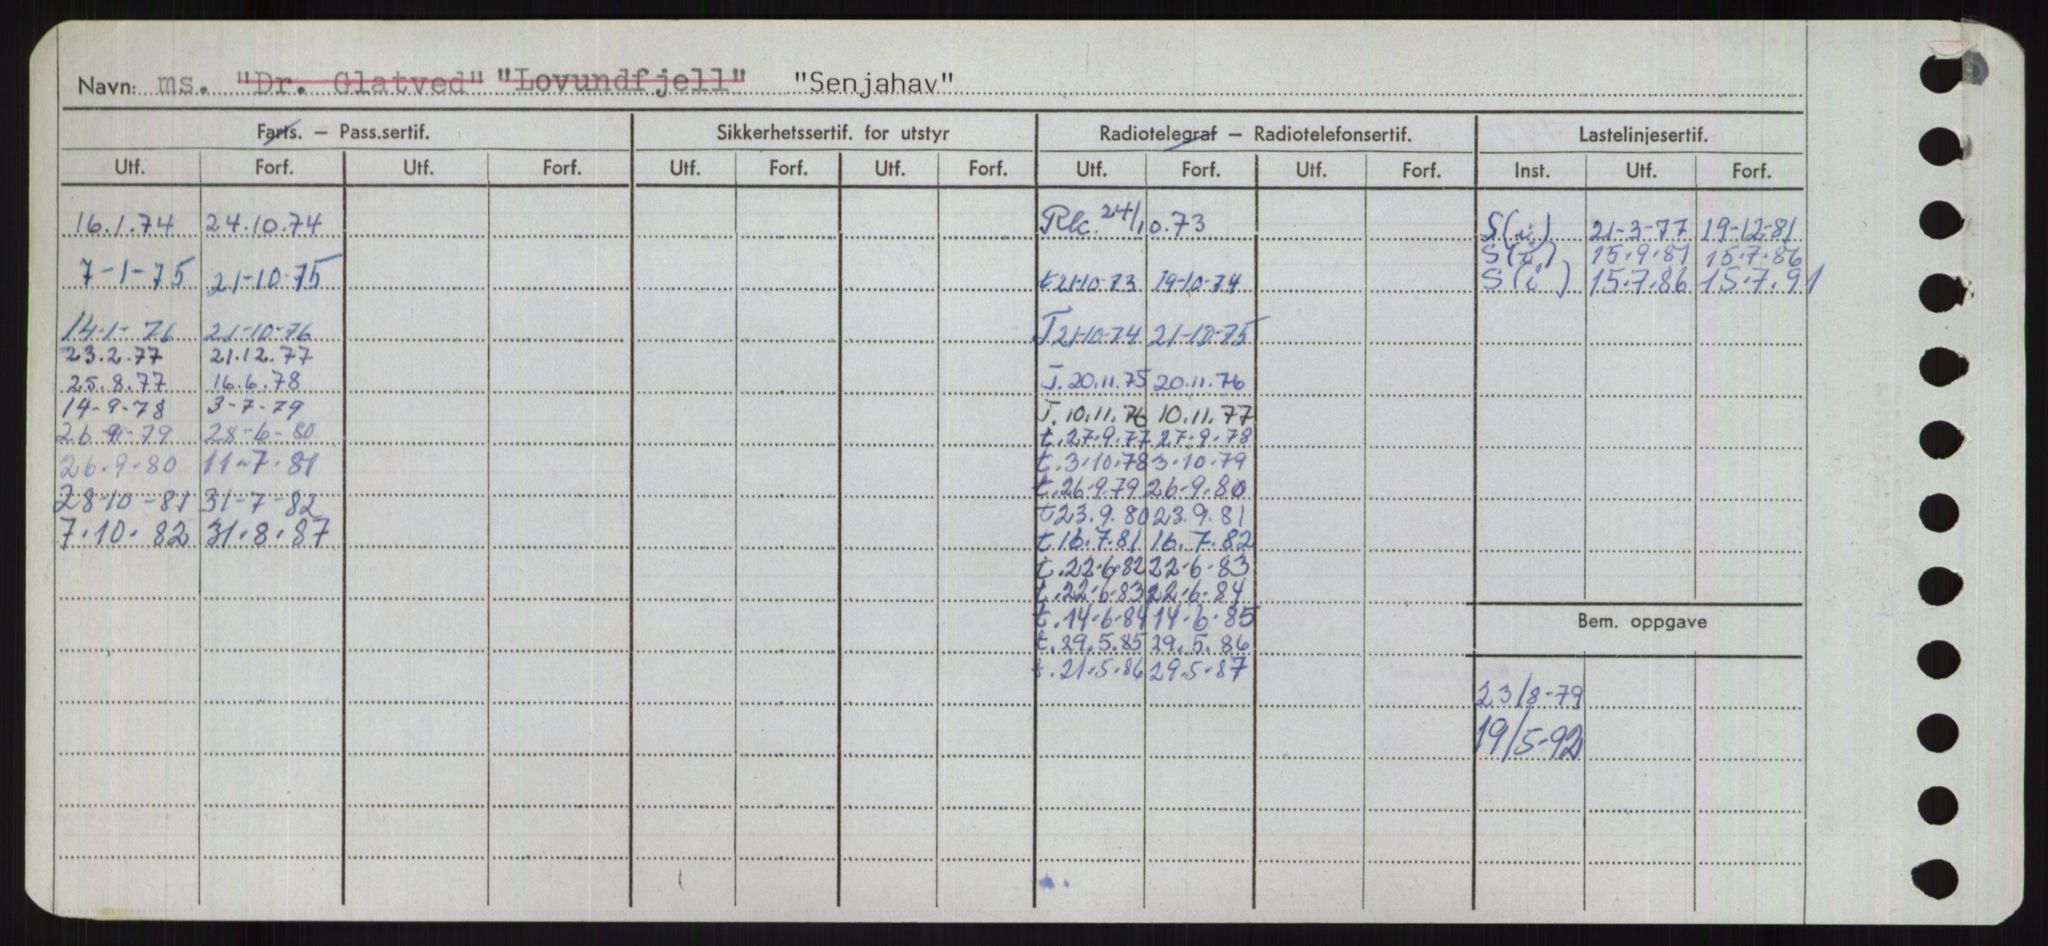 Navn: ms. "Dr. Glatved" "Lovundfjell" "Senjahav"
Farts. – Pass.sertif. Sikkerhetssertif. for utstyr Radiotelegraf – Radiotelefonsertif. Lastelinjesertif.
Utf. Forf. Utf. Forf. Utf. Forf. Utf. Forf. Utf. Forf. Utf. Forf. Inst. Utf. Forf.
16.1.74 24.10.74
7-1-75 21-10-75
14-1-76 21-10-76
23.2.77 21.12.77
25.8.77 16.6.78
14-9-78 3-7-79
26-9-79 28-6-80
26.9.80 11-7.81
28-10-81 31-7-82
7.10.82 31.8.87
Rk. 24/10.73
t21-10-73 19-10-74
T21-10-74 21-10-75
T.20.11.75 20.11.76
T.10.11.76 10.11.77
t.27.9.77 27.9.78
t.3.10.78 3.10.79
t.26.9.79 26.9.80
t23.9.80 23.9.81
t.16.7.81 16.7.82
t.22.6.82 22.6.83
t.22.6.83 22.6.84
t.14.6.84 14.6.85
t.29.5.85 29.5.86
t.21.5.86 29.5.87
S(i) 21-3-77 19-12-81
S(i) 15.9.81 15.7.86
S(i) 15.7.86 15.7.91
Bem. oppgave
23/8-79
19/5-92